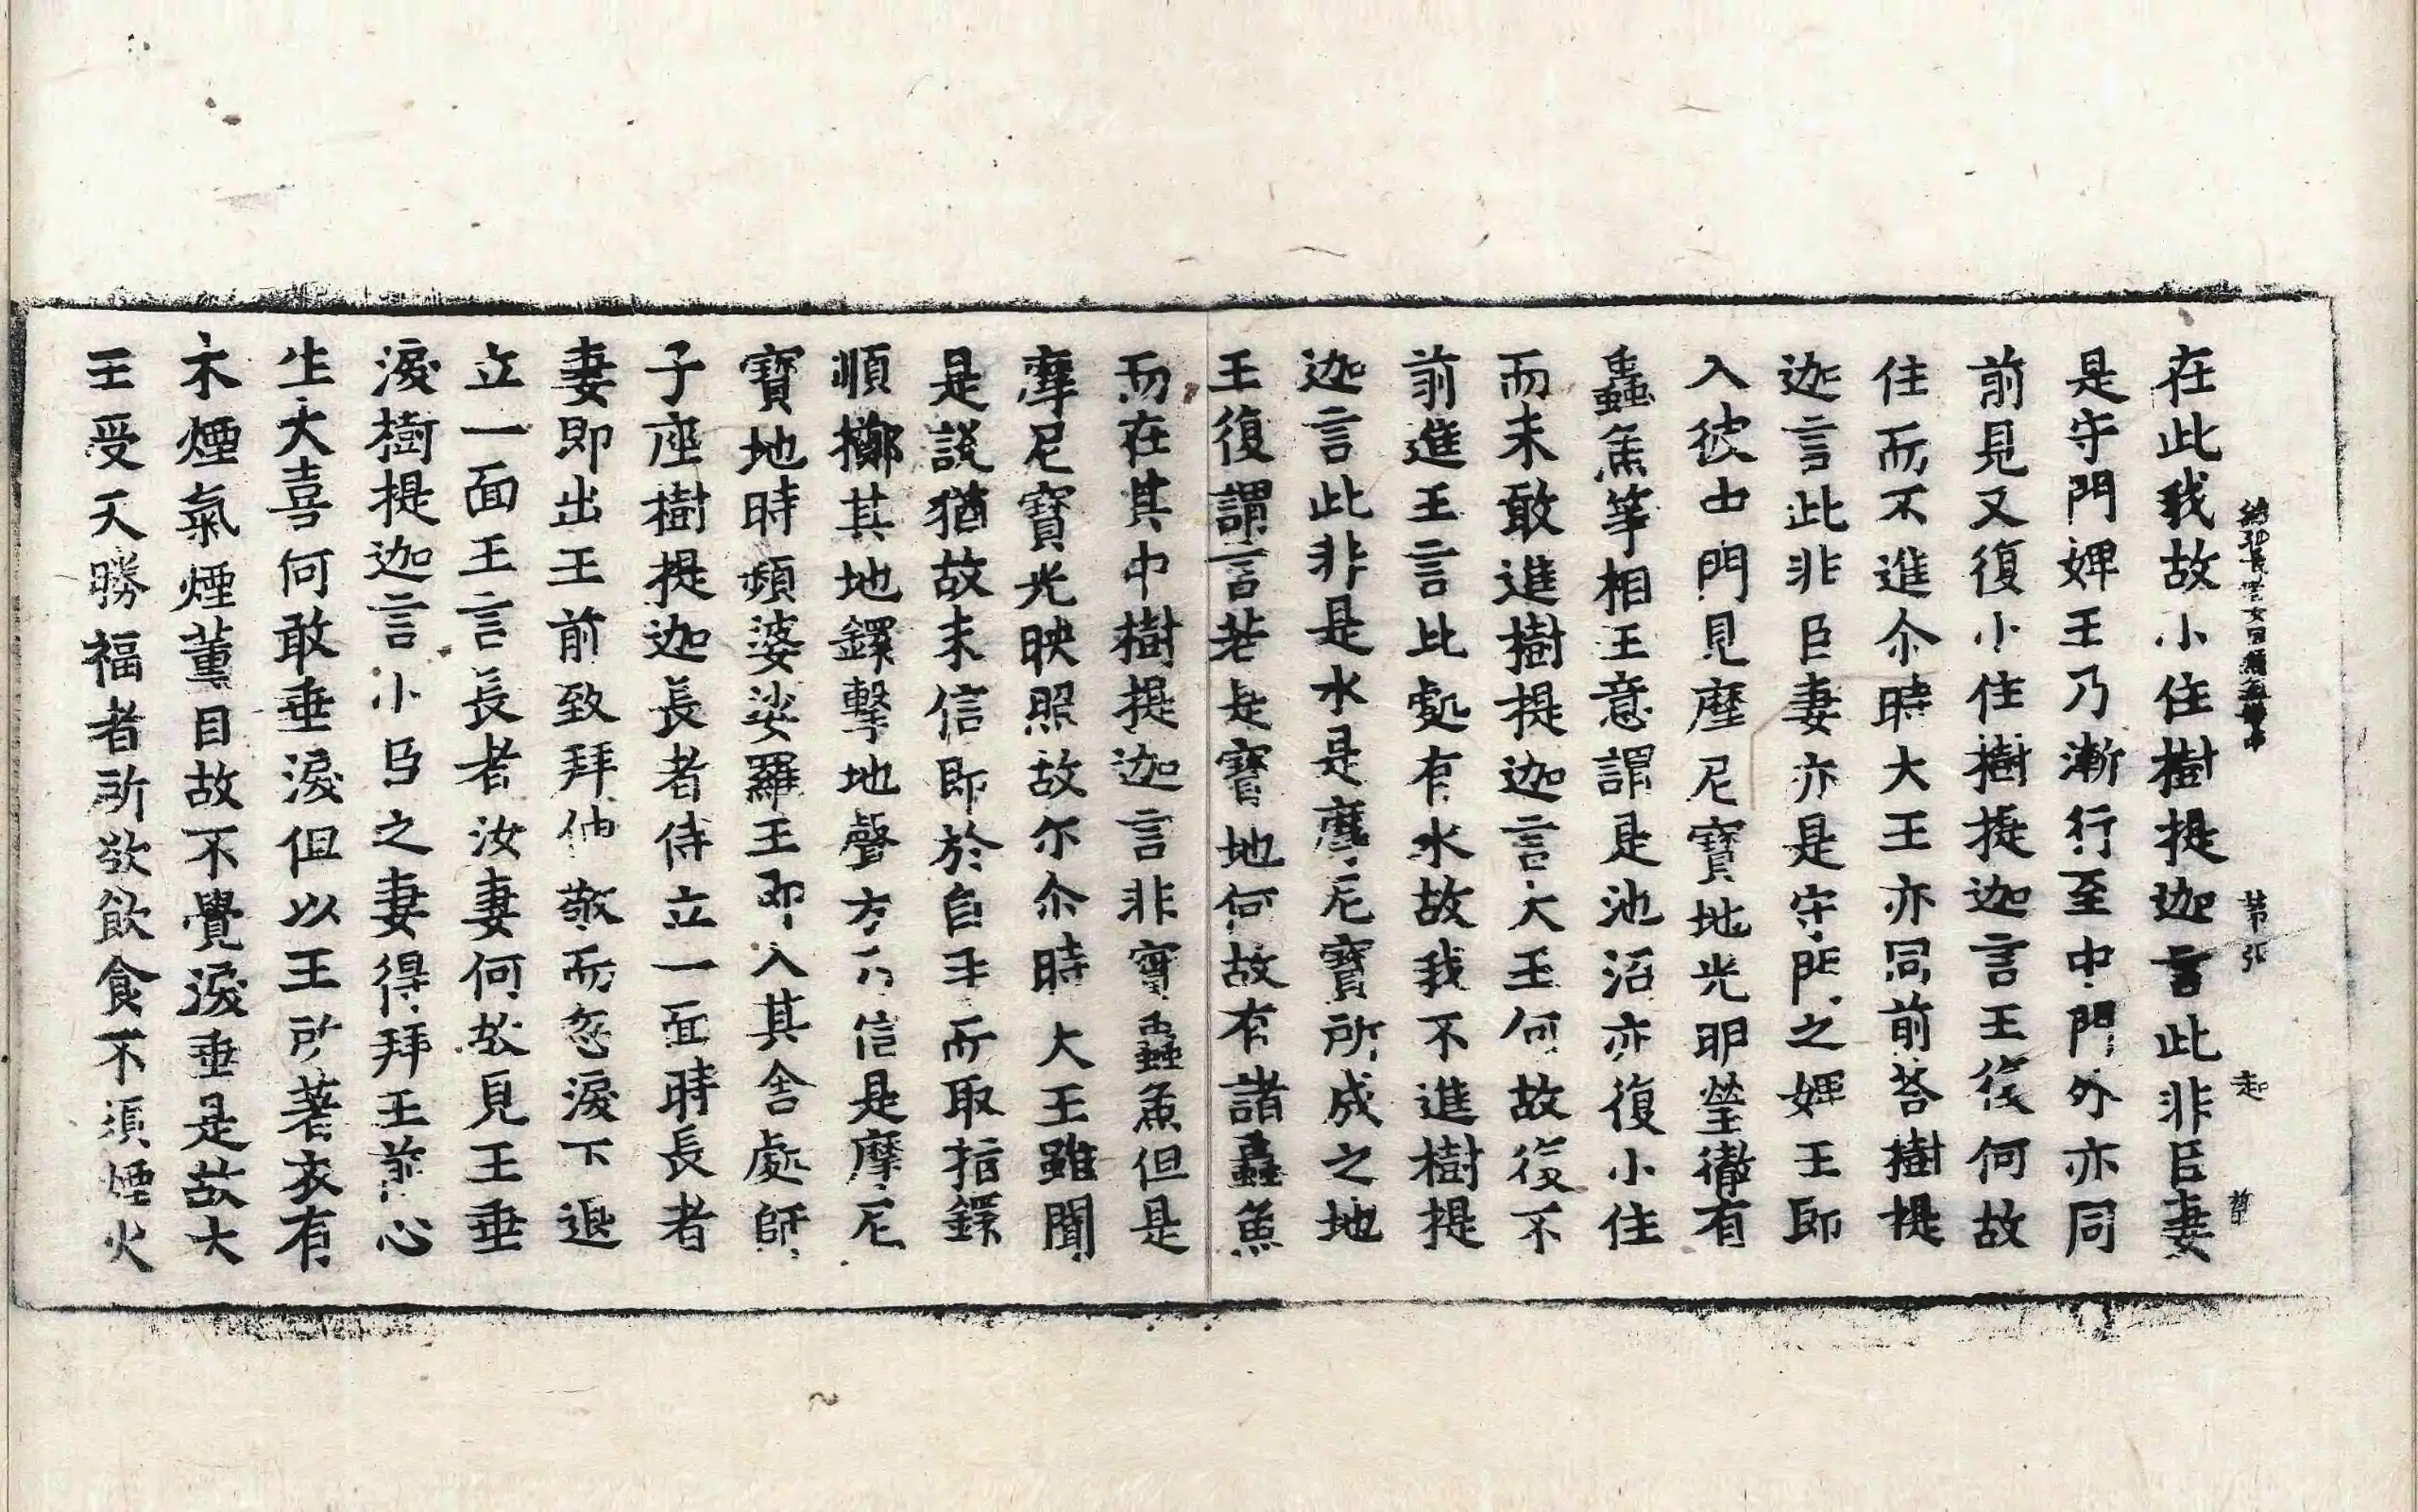 在此我故小住樹提迦言此非臣妻
是守門婢王乃漸行至中門外亦同
前見又復小住樹提迦言王復何故
住而不進尒時大王亦同前荅樹提
迦言此非臣妻亦是守門之婢王即
入彼中門見摩尼寶地光明瑩徹有
蟲魚等相王意謂是池沼亦復小住
而未敢進樹提迦言大王何故復不
前進王言此處有水故我不進樹提
迦言此非是水是摩尼寶所成之地
王復謂言若是寶地何故有諸蟲魚
而在其中樹提迦言非實蟲魚但是
摩尼寶光映照故尓尒時大王雖聞
是說猶故未信即於自手而取指鐶
順擲其地鐶擊地聲方乃信是摩尼
寶地時頻婆娑羅王即入其舍處師
子座樹提迦長者侍立一面時長者
妻即出王前致拜伸敬而忽淚下退
立一面王言長者汝妻何故見王垂
淚樹提迦言小臣之妻得拜王前心
生大喜何敢垂淚但以王所著衣有
木煙氣煙薰目故不覺淚垂是故大
王受天勝福者所欲飲食不須煙火